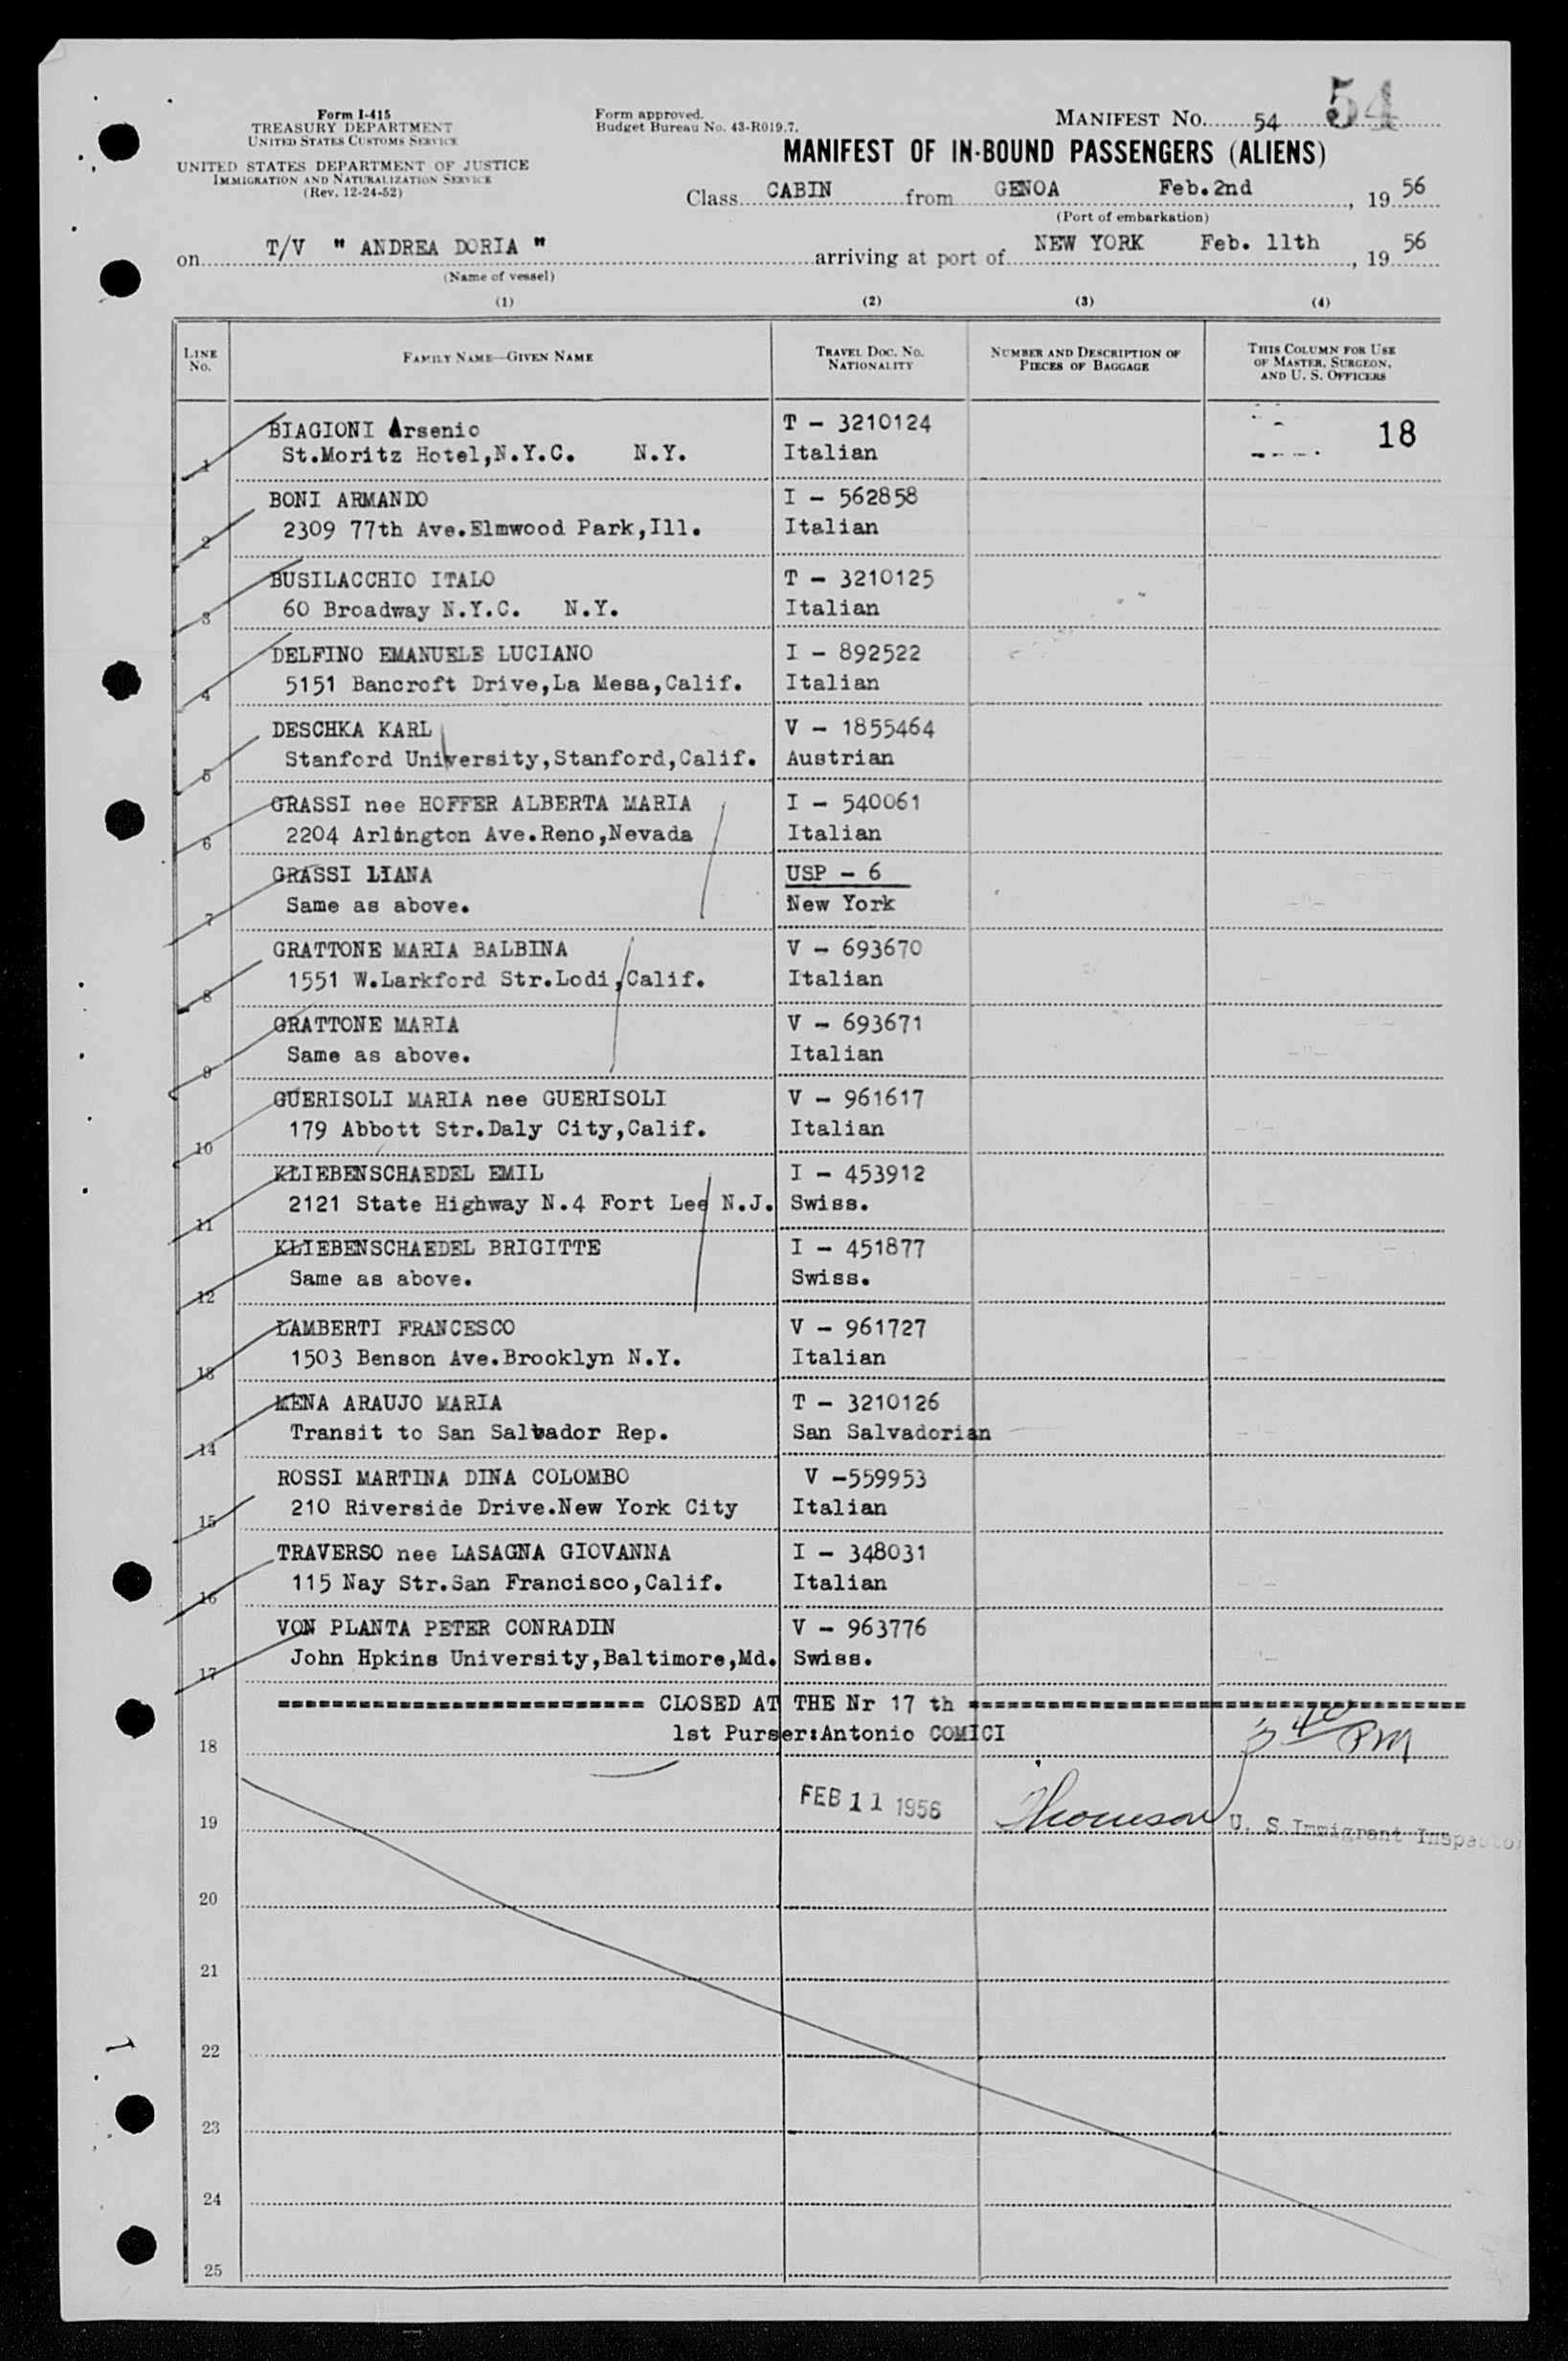 Form I-415
TREASURY DEPARTMENT
UNITED STATES CUSTOMS SERVICE
UNITED STATES DEPARTMENT OF JUSTICE
IMMIGRATION AND NATURALIZATION SERVICE
(Rev. 12-24-52)
Form approved.
Budget Bureau No. 43-R019.7.
MANIFEST No. 54 54
MANIFEST OF IN-BOUND PASSENGERS (ALIENS)
Class CABIN from GENOA Feb.2nd , 19 56
(Port of embarkation)
on T/V " ANDREA DORIA " arriving at port of NEW YORK Feb. 11th , 19 56
(Name of vessel)
(1) (2) (3) (4)
LINE No. FAMILY NAME—GIVEN NAME TRAVEL DOC. No. NATIONALITY NUMBER AND DESCRIPTION OF PIECES OF BAGGAGE THIS COLUMN FOR USE OF MASTER, SURGEON, AND U. S. OFFICERS
BIAGIONI Arsenio T - 3210124 18
1 St.Moritz Hotel,N.Y.C. N.Y. Italian
BONI ARMANDO I - 562858
2 2309 77th Ave.Elmwood Park,Ill. Italian
BUSILACCHIO ITALO T - 3210125
3 60 Broadway N.Y.C. N.Y. Italian
DELFINO EMANUELE LUCIANO I - 892522
4 5151 Bancroft Drive,La Mesa,Calif. Italian
DESCHKA KARL V - 1855464
5 Stanford University,Stanford,Calif. Austrian
GRASSI nee HOFFER ALBERTA MARIA I - 540061
6 2204 Arlington Ave.Reno,Nevada Italian
GRASSI LIANA USP - 6
7 Same as above. New York
GRATTONE MARIA BALBINA V - 693670
8 1551 W.Larkford Str.Lodi,Calif. Italian
GRATTONE MARIA V - 693671
9 Same as above. Italian
GUERISOLI MARIA nee GUERISOLI V - 961617
10 179 Abbott Str.Daly City,Calif. Italian
KLIEBENSCHAEDEL EMIL I - 453912
11 2121 State Highway N.4 Fort Lee N.J. Swiss.
KLIEBENSCHAEDEL BRIGITTE I - 451877
12 Same as above. Swiss.
LAMBERTI FRANCESCO V - 961727
13 1503 Benson Ave.Brooklyn N.Y. Italian
MENA ARAUJO MARIA T - 3210126
14 Transit to San Salvador Rep. San Salvadorian
ROSSI MARTINA DINA COLOMBO V -559953
15 210 Riverside Drive.New York City Italian
TRAVERSO nee LASAGNA GIOVANNA I - 348031
16 115 Nay Str.San Francisco,Calif. Italian
VON PLANTA PETER CONRADIN V - 963776
17 John Hpkins University,Baltimore,Md. Swiss.
=========================== CLOSED AT THE Nr 17 th =====================================
18 1st Purser:Antonio COMICI 3 40 PM
19 FEB 11 1956 Thomson U. S. Immigrant Inspector
20
21
22
23
24
25